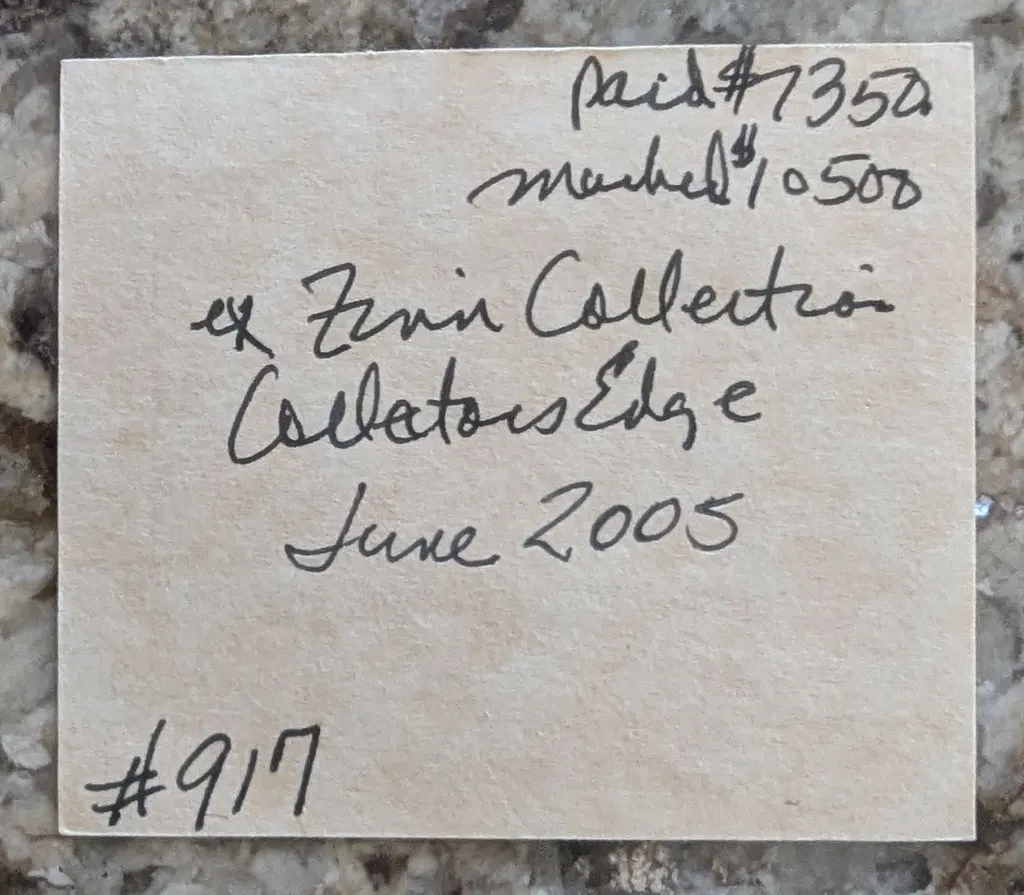 paid $7350
marked $10500
ex Zinin Collection
Collectors Edge
June 2005
#917